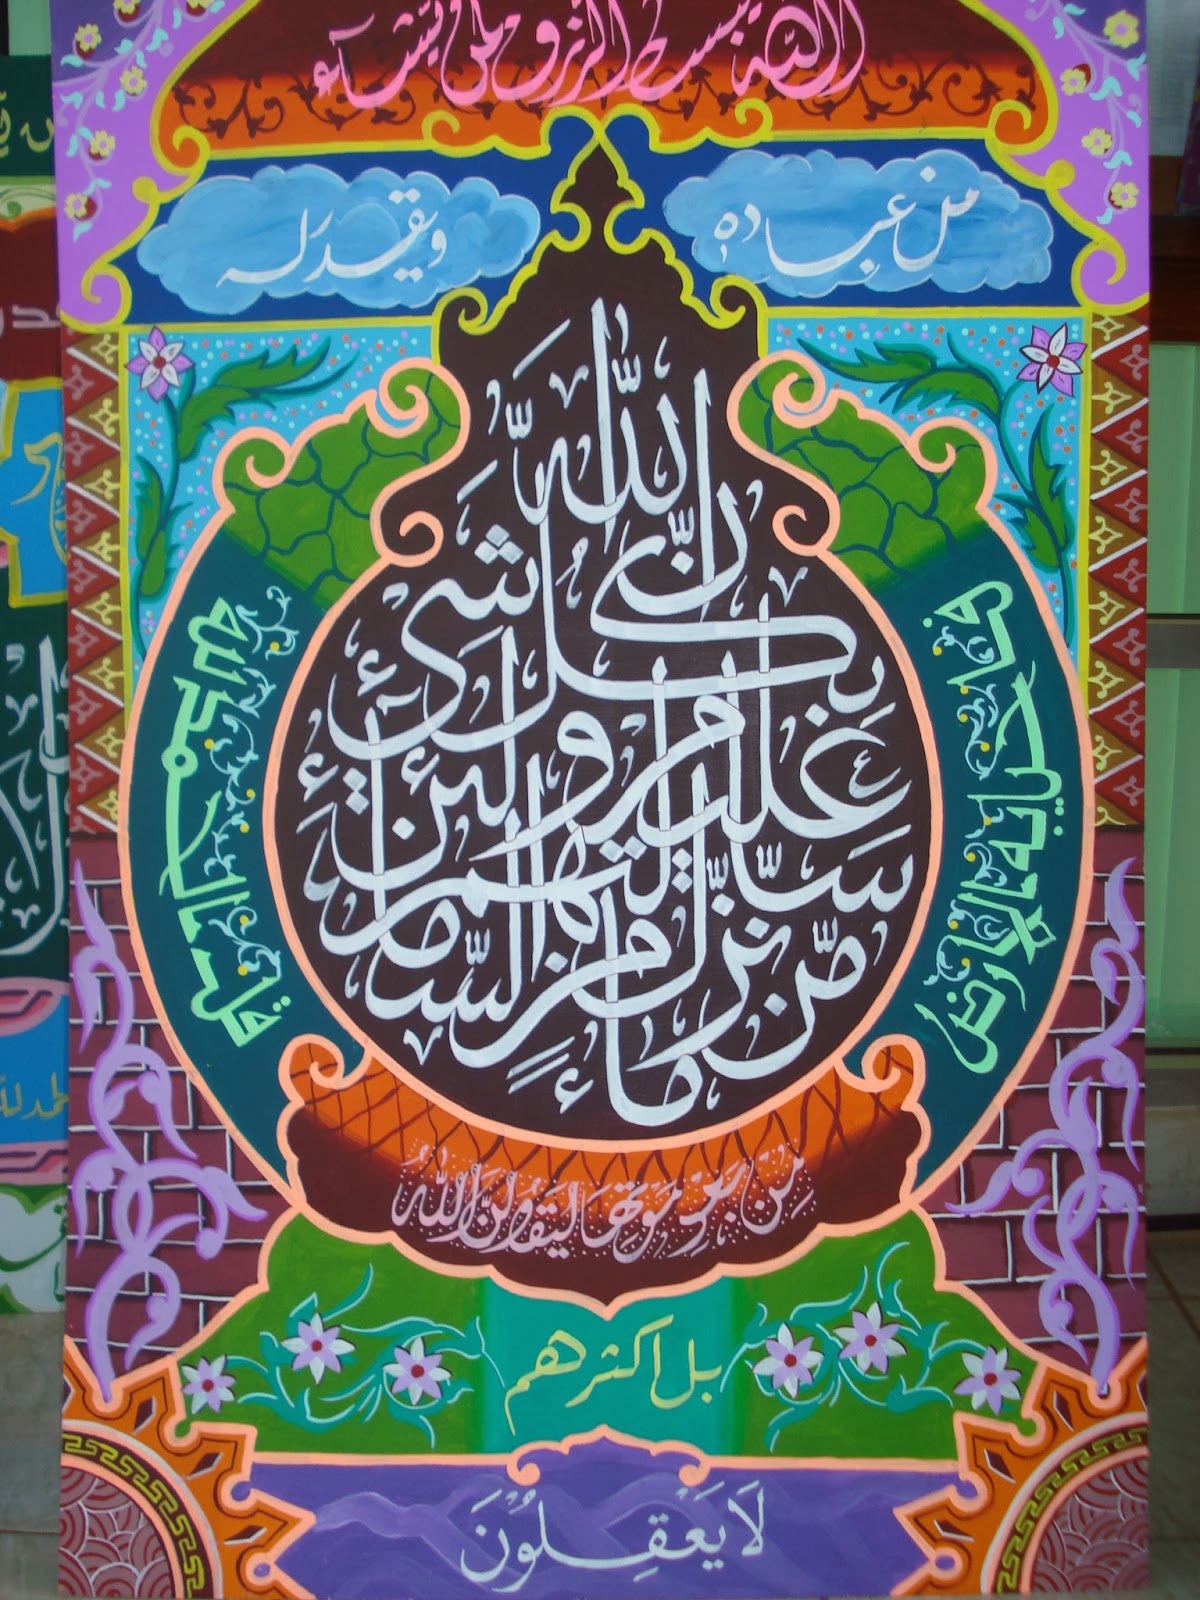 الله يبسط الرزق لمن يشاء
من عباده
ويقدر له
إن الله
بكل شيء
عليم ولئن
سألتهم
من نزل من السماء
ماء
فأحيا به الأرض
مِنْ بَعْدِ مَوْتِهَا لَيَقُولُنَّ اللهُ
قل الحمد لله
بل اكثرهم
لَا يَعْقِلُونَ